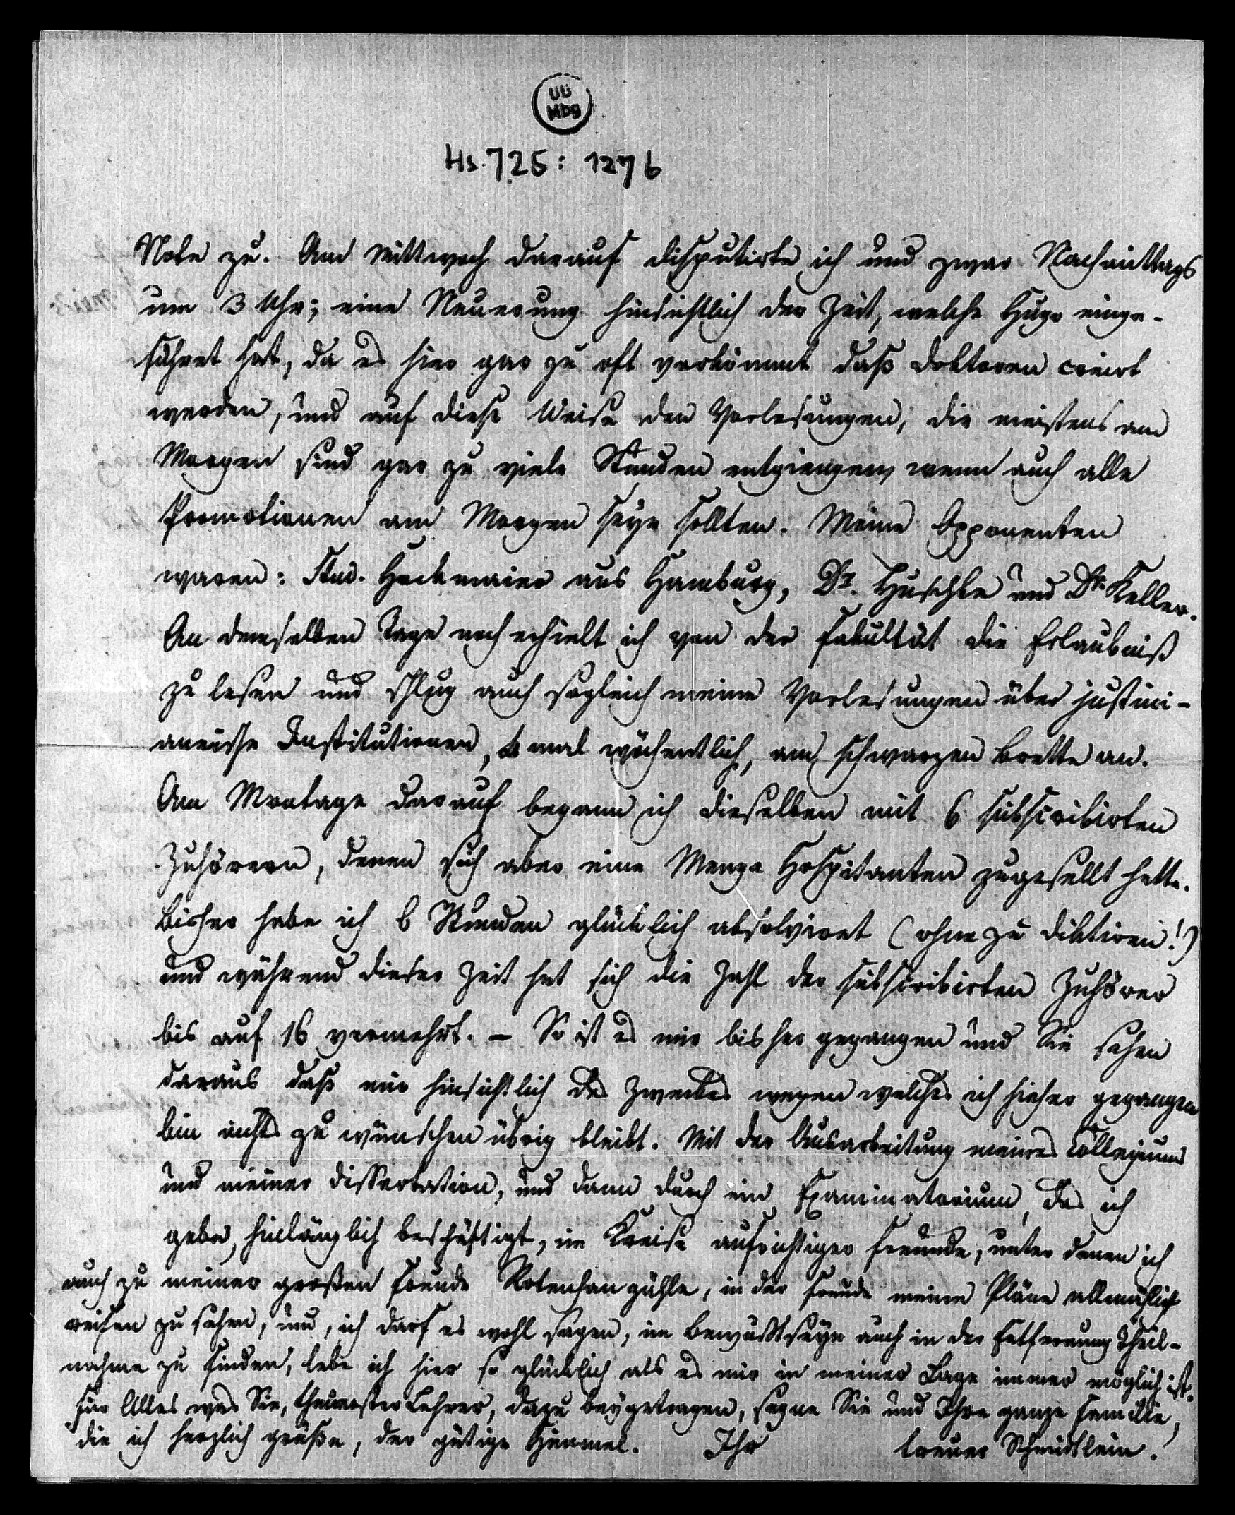 UB
Mbg
Hs. 725: 1276
Note zu. Am Mittwoch darauf disputirte ich und zwar Nachmittags
um 3 Uhr; eine Neuerung hinsichtlich der Zeit, welche Hugo einge-
führet hat, da es hier gar zu oft vorkömmt daß Doktoren creirt
werden, und auf diese Weise den Vorlesungen, die meistens am
Morgen sind gar zu viele Stunden entgiengen, wenn auch alle
Promotionen am Morgen seyn sollten. Meine Opponenten
waren: Stud. Heckmaier aus Hamburg, Dr. Huschke und Dr. Keller.
An demselben Tage noch erhielt ich von der Fakultät die Erlaubniß
zu lesen und schlug auch sogleich meine Vorlesungen über justini-
aneische Institutionen, 6 mal wöchentlich, am schwarzen Brette an.
Am Montage darauf begann ich dieselben mit 6 subscribirten
Zuhörern, denen sich aber eine Menge Hospitanten zugesellt hatte.
Bisher habe ich 6 Stunden glücklich absolviret (ohne zu diktiren!)
und während dieser Zeit hat sich die Zahl der subscribirten Zuhörer
bis auf 16 vermehrt. – So ist es mir bisher gegangen und Sie sehen
daraus daß mir hinsichtlich des Zweckes wegen welches ich hieher gegangen
bin nichts zu wünschen übrig bleibt. Mit der Ausarbeitung meines Collegiums
und meiner Dissertation, und dann durch ein Examinatorium, das ich
gebe, hinlänglich beschäftigt, im Kreise aufrichtiger Freunde, unter denen ich
auch zu meiner großen Freude Rotenhan zähle, in der Freude meine Pläne allmählich
reifen zu sehen, und, ich darf es wohl sagen, im Bewußtseyn auch in der Entfernung Theil-
nahme zu finden, lebe ich hier so glücklich als es mir in meiner Lage immer möglich ist.
Für Alles was Sie, theuerster Lehrer, dazu beygetragen, segne Sie und Ihre ganze Familie,
die ich herzlich grüße, der gütige Himmel. Ihr treuer Schmidtlein.